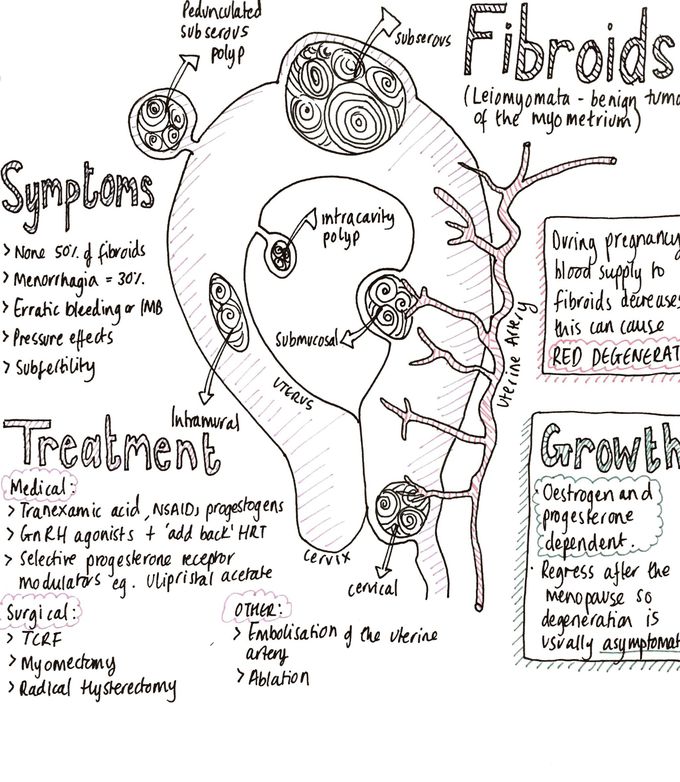 Fibroids
(Leiomyomata - benign tumo
of the myometrium)
Pedunculated
subserous
polyp
subserous
Symptoms
> None 50% of fibroids
> Menorrhagia = 30%
> Erratic bleeding or IMB
> Pressure effects
> Subfertility
intracavity
polyp
Submucosal
Intramural
UTERUS
Uterine Artery
cervix
cervical
During pregnancy
blood supply to
fibroids decreases
this can cause
RED DEGENERAT
Growth
· Oestrogen and
progesterone
dependent.
· Regress after the
menopause so
degeneration is
usually asymptomat
Treatment
Medical:
> Tranexamic acid, NSAIDs progestogens
> GnRH agonists + 'add back' HRT
> Selective progesterone receptor
modulators eg. Ulipristal acetate
Surgical:
> TCRF
> Myomectomy
> Radical Hysterectomy
OTHER:
> Embolisation of the uterine
artery
> Ablation